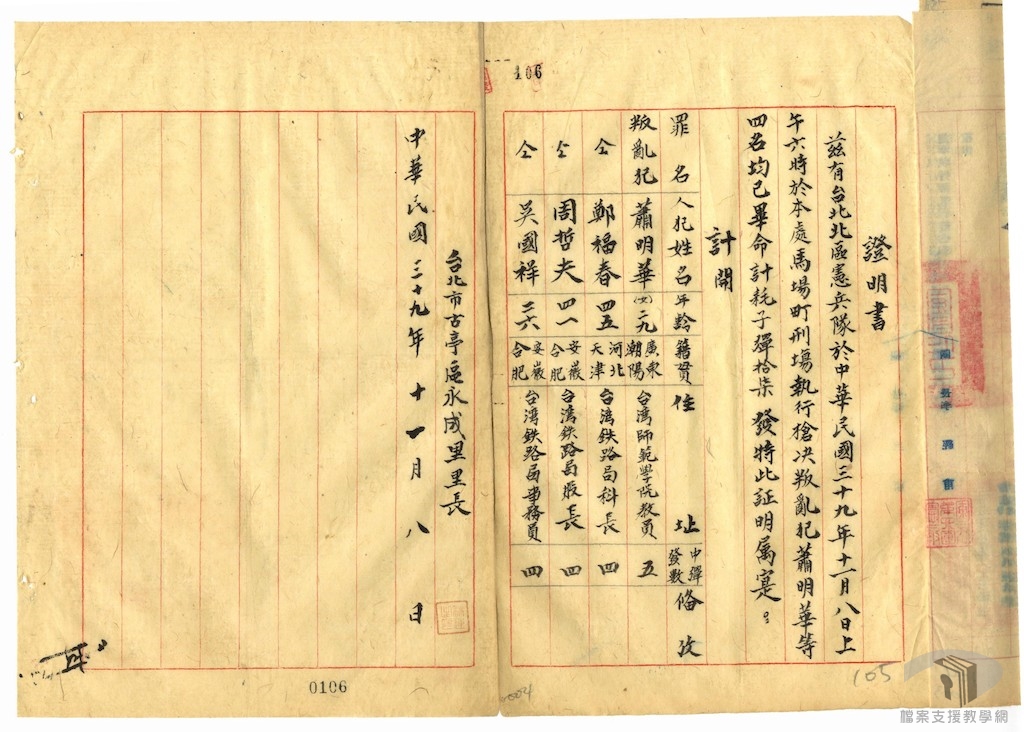 106
證明書
茲有台北北區憲兵隊於中華民國三十九年十一月八日上
午六時於本處馬場町刑場執行搶决叛亂犯蕭明華等
四名均已畢命計耗子彈拾柒發特此証明屬寔
計開
罪名 人犯姓名 年齡 籍貫 住址 中彈發數 俻攷
叛亂犯 蕭明華 (女)二九 廣東朝陽 台灣師範學院教員 五
仝 鄭福春 四五 河北天津 台湾鉄路局科長 四
仝 周哲夫 四一 安徽合肥 台湾鉄路局股長 四
仝 吳國祥 三六 安徽合肥 台湾鉄路局事務員 四
台北市古亭區永成里里長
中華民國三十九年十一月八日
0106
004
105
檔案支援教學網